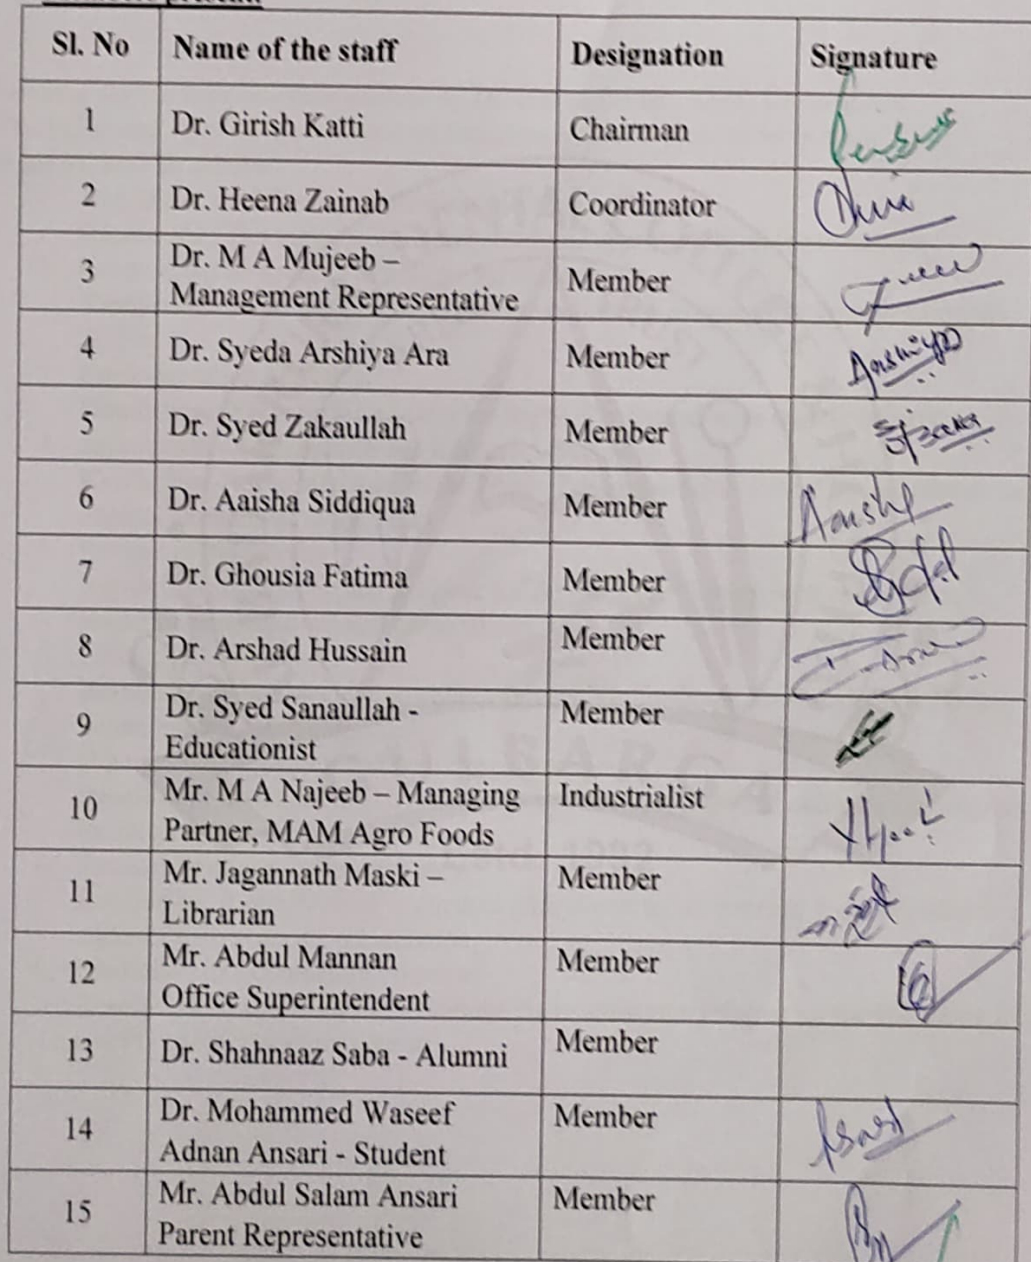 Sl. No Name of the staff Designation Signature
1 Dr. Girish Katti Chairman
2 Dr. Heena Zainab Coordinator
3 Dr. M A Mujeeb –
Management Representative Member
4 Dr. Syeda Arshiya Ara Member
5 Dr. Syed Zakaullah Member
6 Dr. Aaisha Siddiqua Member
7 Dr. Ghousia Fatima Member
8 Dr. Arshad Hussain Member
9 Dr. Syed Sanaullah - Member
Educationist
10 Mr. M A Najeeb – Managing Industrialist
Partner, MAM Agro Foods
11 Mr. Jagannath Maski – Member
Librarian
12 Mr. Abdul Mannan Member
Office Superintendent
13 Dr. Shahnaaz Saba - Alumni Member
14 Dr. Mohammed Waseef Member
Adnan Ansari - Student
15 Mr. Abdul Salam Ansari Member
Parent Representative